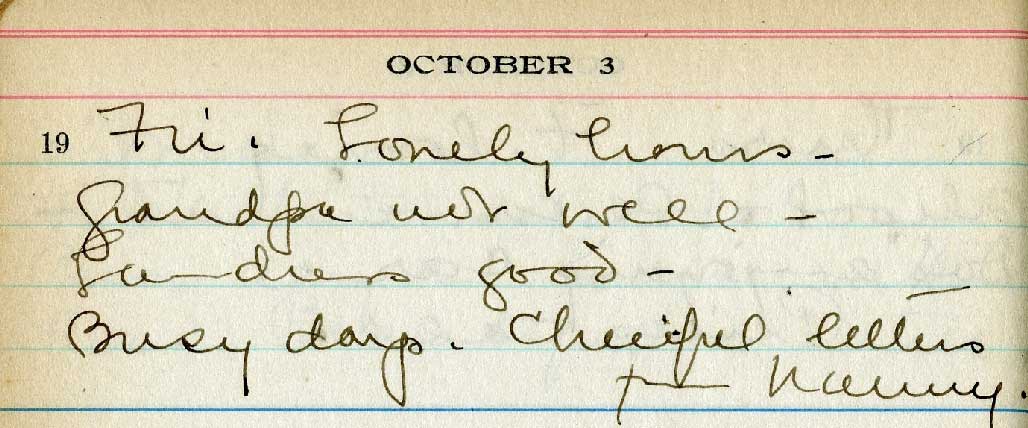 OCTOBER 3
19 Fri. Lonely hours -
Grandpa not well -
Laundress good -
Busy days. Cheerful letters
from Nanny.